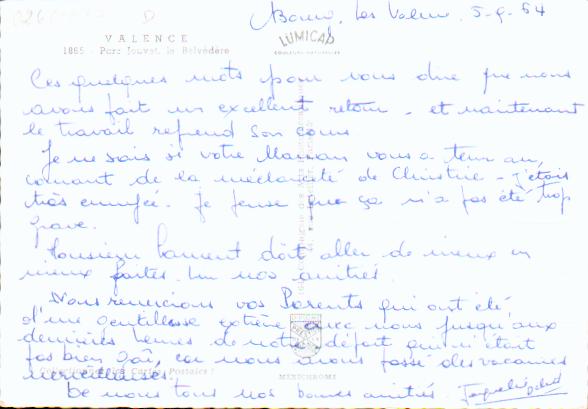 Bourg Les Valence. 5-9-64
VALENCE
1865 - Parc Jouvet, le Belvédère
LUMICAP
Ces quelques mots pour vous dire que nous
avons fait un excellent retour - et maintenant
le travail reprend son cours
Je ne sais si votre Maman vous a tenu au
courant de la méchanceté de Christine - j'étais
très ennuyée. Je pense que ça n'a pas été trop
grave.
Monsieur Laurent doit aller de mieux en
mieux faites lui nos amitiés.
Nous remercions vos Parents qui ont été
d'une gentillesse extrême avec nous jusqu'aux
dernières heures de notre départ qui n'était
pas bien gai, car nous avons passé des vacances
merveilleuses.
Cartes Postales
MEXICHROME
De nous tous nos bonnes amitiés.